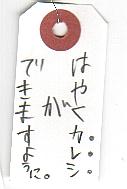 はやくカレシ
が
できますように。